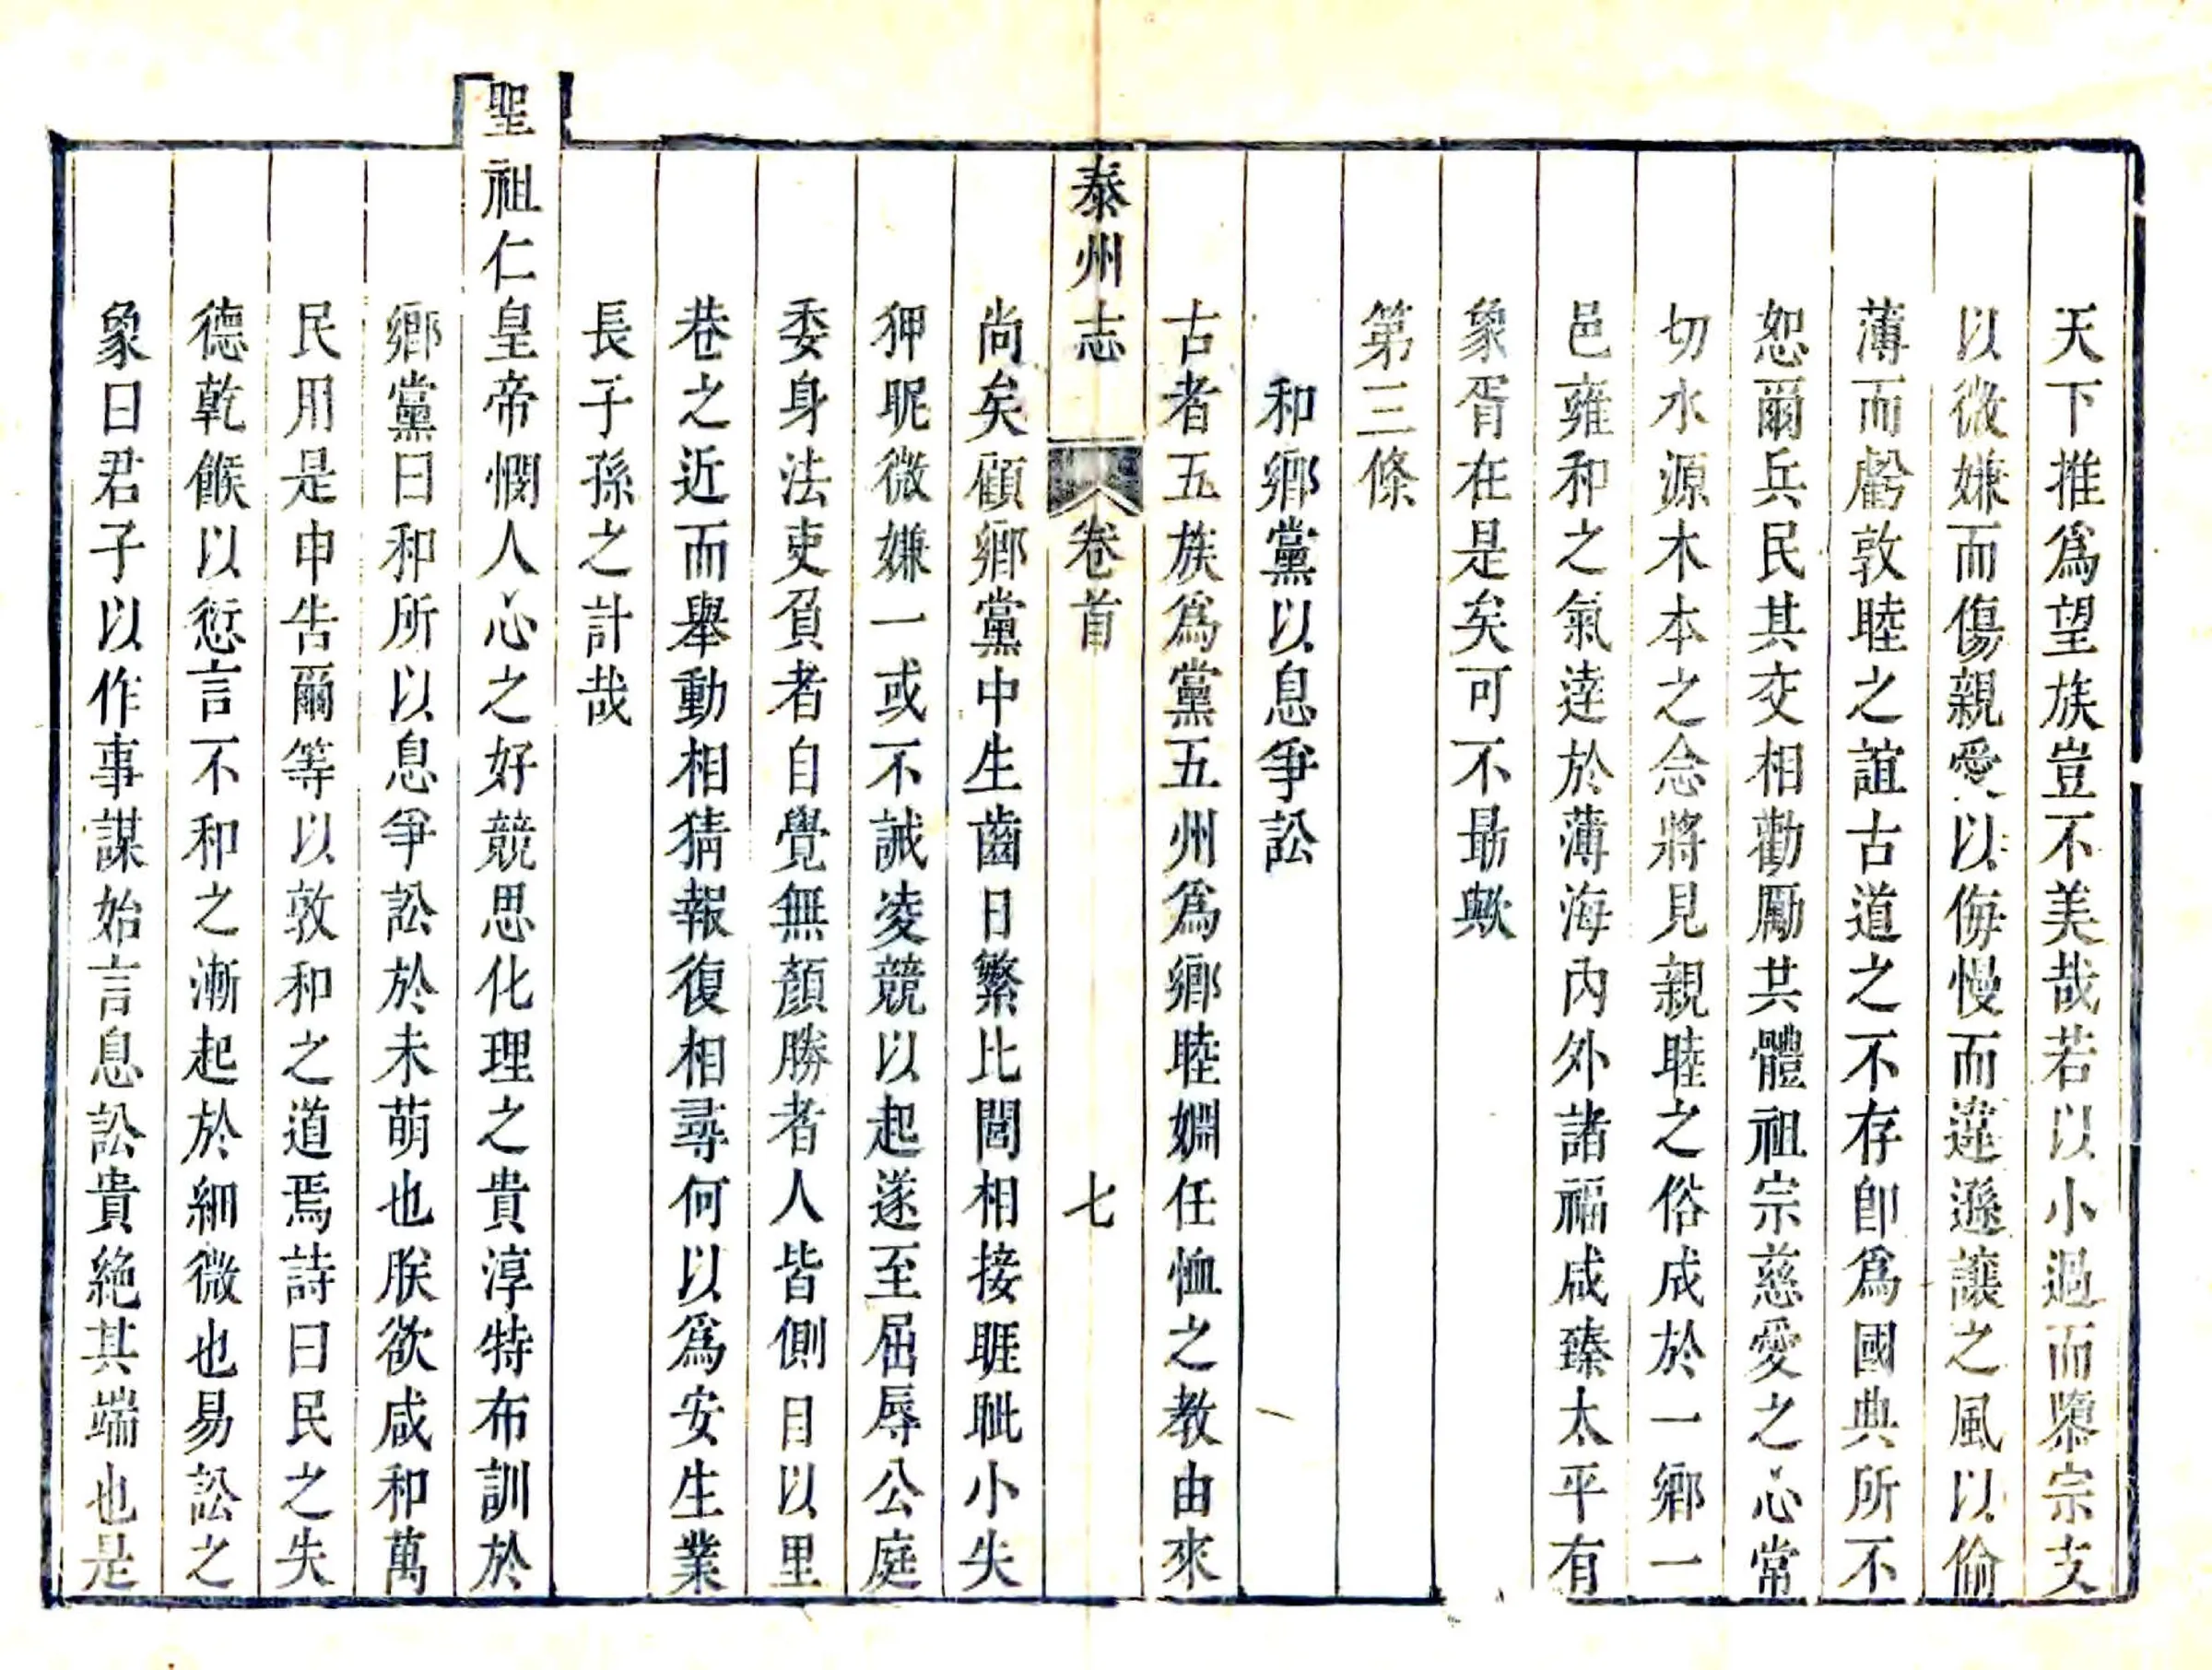 天下推爲望族豈不美哉若以小過而隳宗支
以微嫌而傷親愛以侮慢而違遜讓之風以偷
薄而虧敦睦之誼古道之不存卽爲國典所不
恕爾兵民其交相勸勵共體祖宗慈愛之心常
切水源木本之念將見親睦之俗成於一鄉一
邑雍和之氣達於薄海內外諸福咸臻太平有
象胥在是矣可不勗歟
第三條
和鄉黨以息爭訟
古者五族爲黨五州爲鄉睦婣任恤之教由來
泰州志
卷首
七
尚矣顧鄉黨中生齒日繁比閭相接睚眦小失
狎昵微嫌一或不誡凌競以起遂至屈辱公庭
委身法吏負者自覺無顏勝者人皆側目以里
巷之近而舉動相猜報復相尋何以爲安生業
長子孫之計哉
聖祖仁皇帝憫人心之好競思化理之貴淳特布訓於
鄉黨曰和所以息爭訟於未萌也朕欲咸和萬
民用是申告爾等以敦和之道焉詩曰民之失
德乾餱以愆言不和之漸起於細微也易訟之
象曰君子以作事謀始言息訟貴絕其端也是